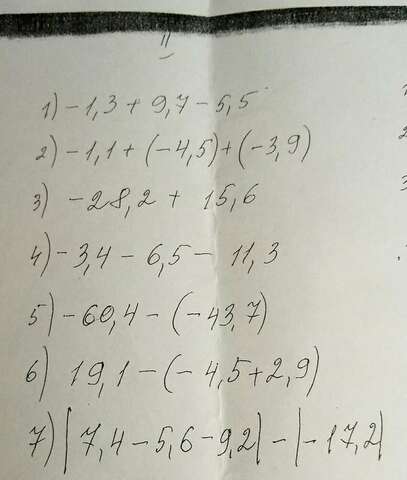 II
1) -1,3 + 9,7 - 5,5
2) -1,1 + (-4,5) + (-3,9)
3) -28,2 + 15,6
4) -3,4 - 6,5 - 11,3
5) -60,4 - (-43,7)
6) 19,1 - (-4,5 + 2,9)
7) |7,4 - 5,6 - 9,2| - |-17,2|